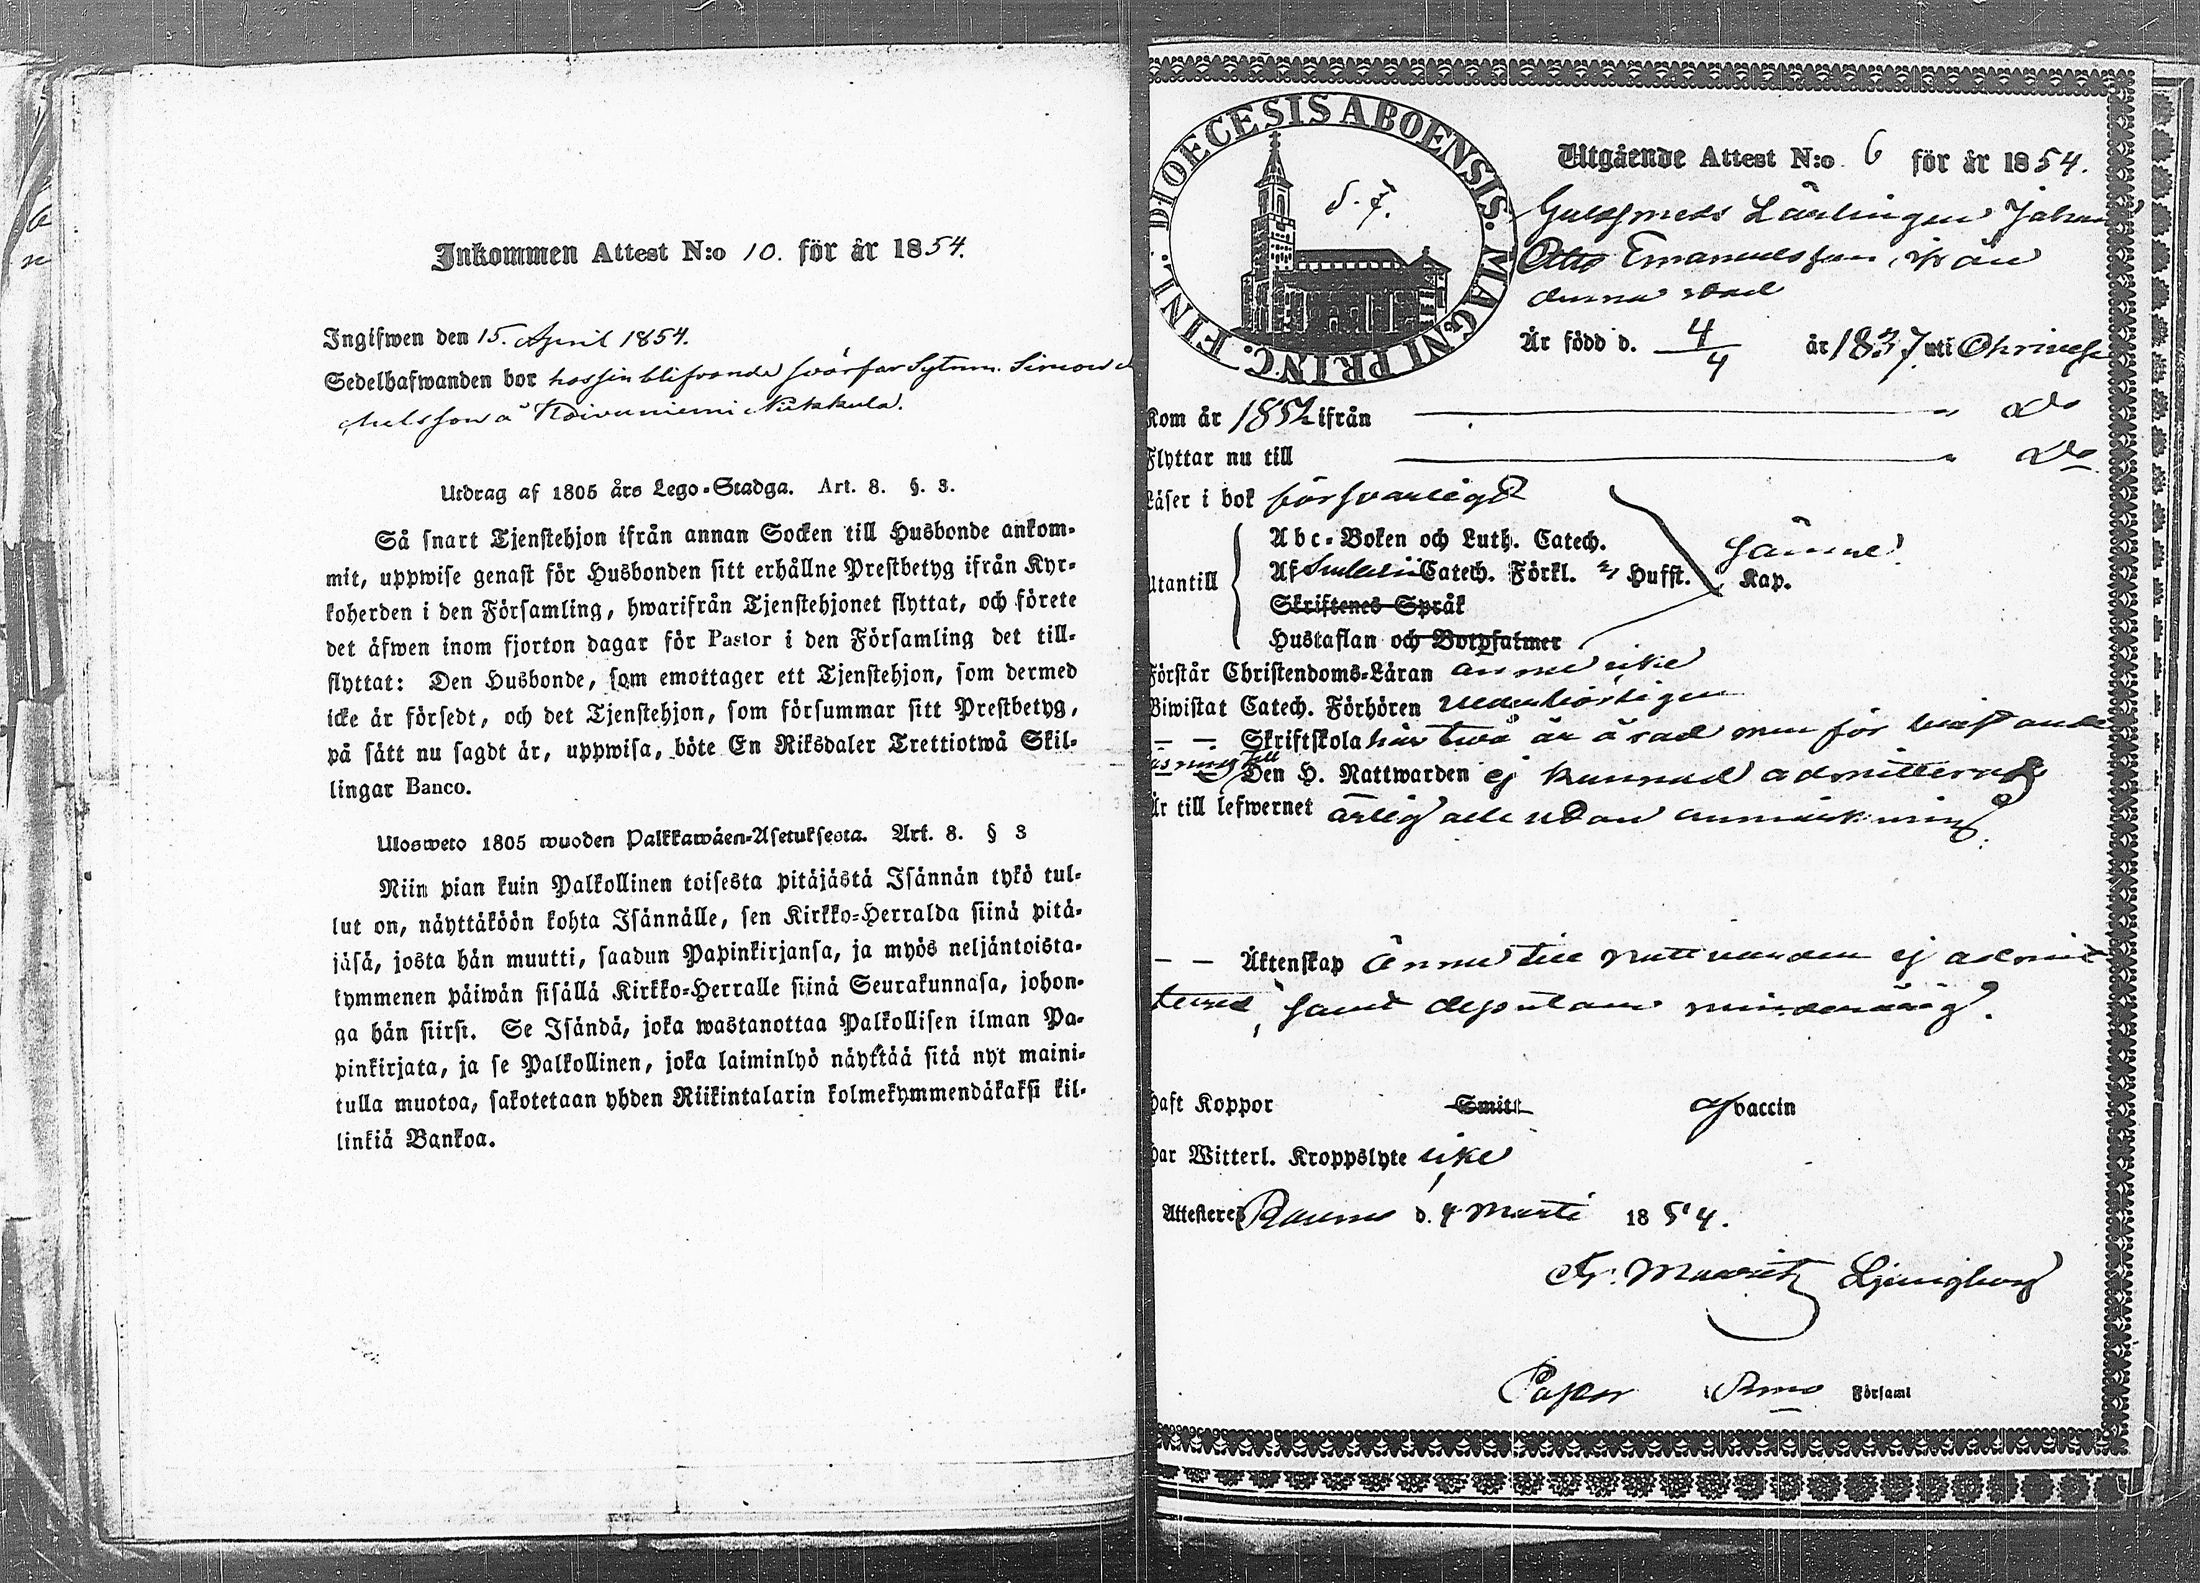 Inkommen Attest N:o 10. för år 1854.
Ingifwen den 15. April 1854.
Sedelhafwanden bor hos sin blifvande svärfar Sytnm. Simon
å Koivuniemi Nikkula.
Utdrag af 1805 års Lego-Stadga. Art. 8. §. 3.
Så snart Tjenstehjon ifrån annan Socken till Husbonde ankom-
mit, uppwise genast för Husbonden sitt erhållne Prestbetyg ifrån Kyr-
koherden i den Församling, hwarifrån Tjenstehjonet flyttat, och förete
det äfwen inom fjorton dagar för Pastor i den Församling det till-
flyttat: Den Husbonde, som emottager ett Tjenstehjon, som dermed
icke är försedt, och det Tjenstehjon, som försummar sitt Prestbetyg,
på sätt nu sagdt är, uppwisa, böte En Riksdaler Trettiotwå Skil-
lingar Banco.
Ulosweto 1805 wuoden Palkkawäen-Asetuksesta. Art. 8. § 3
Niin pian kuin Palkollinen toisesta pitäjästä Isännän tykö tul-
lut on, näyttäköön kohta Isännälle, sen Kirkko-Herralda siinä pitä-
jäsä, josta hän muutti, saadun Papinkirjansa, ja myös neljäntoista-
kymmenen päiwän sisällä Kirkko-Herralle siinä Seurakunnasa, johon-
ga hän siirsi. Se Isändä, joka wastanottaa Palkollisen ilman Pa-
pinkirjata, ja se Palkollinen, joka laiminlyö näyttää sitä nyt maini-
tulla muotoa, sakotetaan yhden Riikintalarin kolmekymmendäkaksi kil-
linkiä Bankoa.
DIOECESIS ABOENSIS. MAGNI PRINC. FINL.
Utgående Attest N:o 6 för år 1854.
Guldsmeds Lärlingen Johan
Otto Emanuelsson, ifrån
denna stad
Är född d. 4/4 år 1837 uti Ohrivesi
Kom år 1852 ifrån — " Do
Flyttar nu till — " Do
Läser i bok försvarligt
Utantill
Abc-Boken och Luth. Catech.
Af Catech. Förkl. Hufst. Kap.
Skriftenes Språk
Hustaflan och Botpsalmer
Förstår Christendoms-Läran ännu icke
Biwistat Catech. Förhören vederbörligen
— — Skriftskola här två år å rad men för
Den H. Nattwarden ej kunnat admitteras
Är till lefwernet ärlig och utan anmärkning.
— — Äktenskap Ännu till nattvarden ej admit
terad, samt dessutom minderårig.
Haft Koppor Smitt af vaccin
Har Witterl. Kroppslyte icke
Attesteres Raumo d. 4 Marti 1854.
Fr. Mauritz Ljungberg
Pastor i Församl